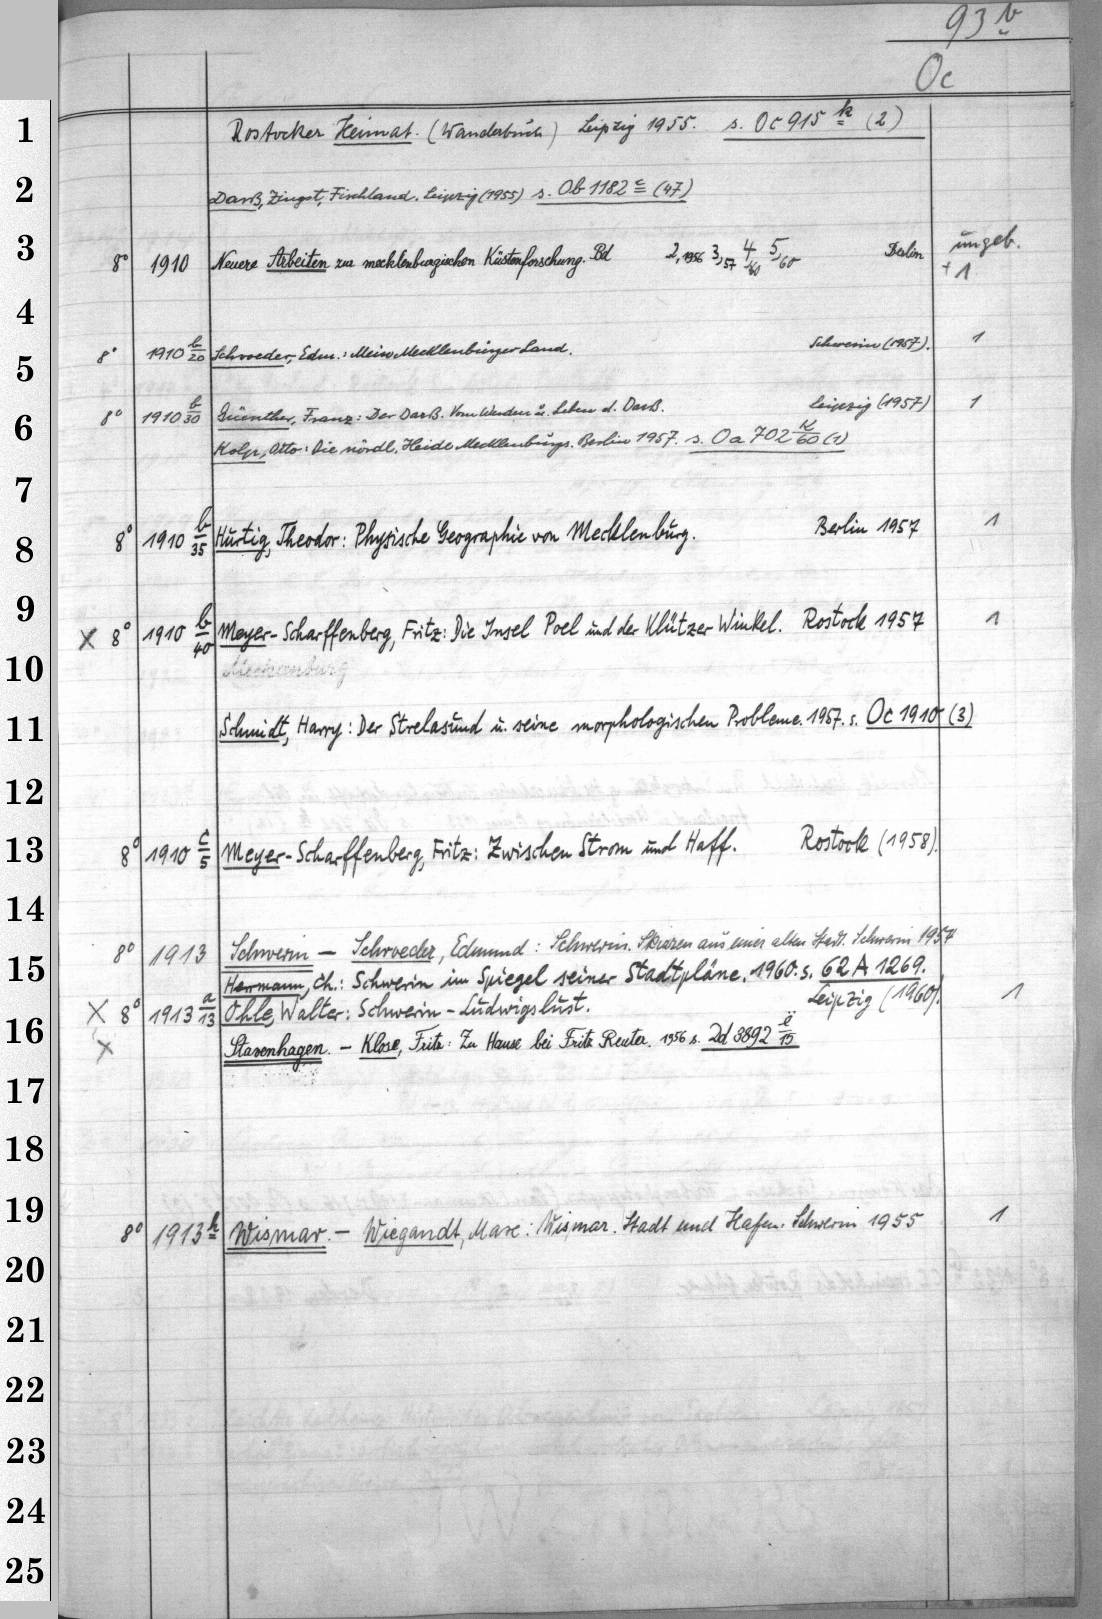 93 b
Oc
1 Rostocker Heimat. (Wanderbuch) Leipzig 1955. s. Oc 915 k (2)
2 Darß, Zingst, Fischland. Leipzig (1955) s. Ob 1182 c (47)
3 8° 1910 Neuere Arbeiten zur mecklenburgischen Küstenforschung. Bd 2, 1956 3, 57 4, 60 5, 60 Berlin ungeb. + 1
4
5 8° 1910 b/20 Schroeder, Edm.: Mein Mecklenburger Land. Schwerin (1957). 1
6 8° 1910 b/30 Günther, Franz: Der Darß. Vom Werden u. Leben d. Darß. Leipzig (1957) 1
Kolp, Otto: Die nördl. Heide Mecklenburgs. Berlin 1957. s. Oa 702 k/60 (1)
7
8 8° 1910 b/35 Hurtig, Theodor: Physische Geographie von Mecklenburg. Berlin 1957 1
9 X 8° 1910 b/40 Meyer-Scharffenberg, Fritz: Die Insel Poel und der Klützer Winkel. Rostock 1957 1
10 Mecklenburg
11 Schmidt, Harry: Der Strelasund u. seine morphologischen Probleme. 1957. s. Oc 1910 (3)
12
13 8° 1910 c/5 Meyer-Scharffenberg, Fritz: Zwischen Strom und Haff. Rostock (1958).
14
15 8° 1913 Schwerin — Schroeder, Edmund: Schwerin. Skizzen aus einer alten Stadt. Schwerin 1957
Hermann, Ch.: Schwerin im Spiegel seiner Stadtpläne. 1960. s. 62 A 1269.
X 8° 1913 a/13 Ohle, Walter: Schwerin - Ludwigslust. Leipzig (1960). 1
16 X Stavenhagen. — Klose, Fritz: Zu Hause bei Fritz Reuter. 1956 s. Dd 3892 ë/15
17
18
19 8° 1913 k Wismar. — Wiegandt, Max: Wismar. Stadt und Hafen. Schwerin 1955 1
20
21
22
23
24
25